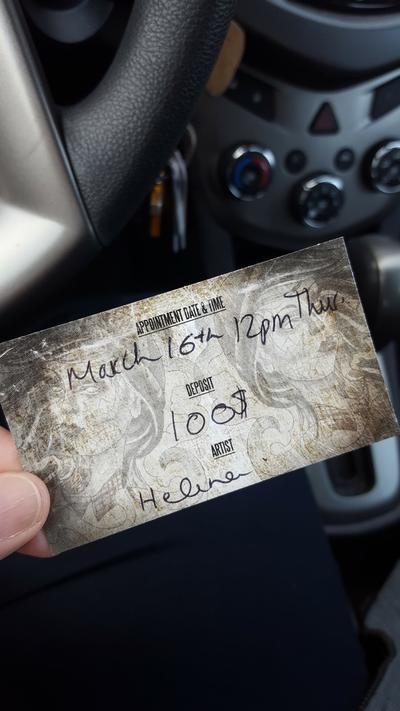 APPOINTMENT DATE & TIME
March 16th 12pm Thur.
DEPOSIT
100$
ARTIST
Helena